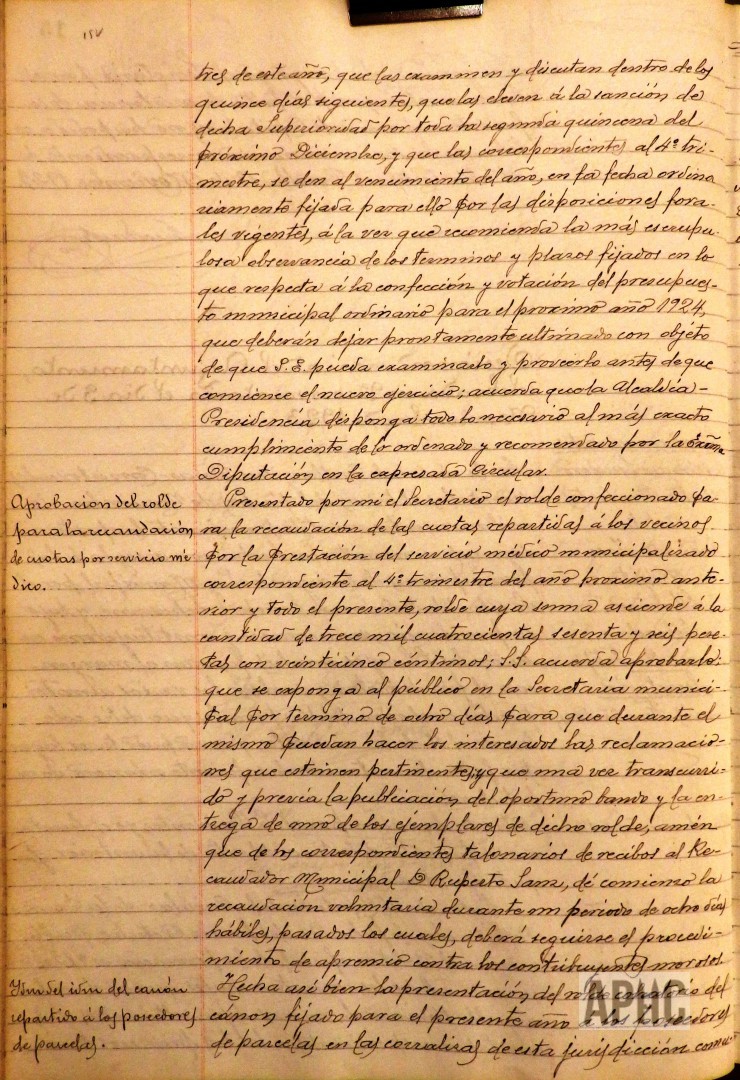 15v
tres de este año, que las examinen y discutan dentro de los
quince días siguientes, que las eleven á la sanción de
dicha Superioridad por toda la segunda quincena del
próximo Diciembre, y que las correspondientes al 4º tri-
mestre, se den al vencimiento del año, en la fecha ordina
riamente fijada para ello por las disposiciones fora-
les vigentes, á la vez que recomienda la más escrupu-
losa observancia de los terminos y plazos fijados en lo
que respecta á la confección y votación del presupues-
to municipal ordinario para el proximo año 1924,
que deberán dejar prontamente ultimado con objeto
de que S.E. pueda examinarlo y proveerlo antes de que
comience el nuevo ejercicio; acuerda que la Alcaldía-
Presidencia disponga todo lo necesario al más exacto
cumplimiento de lo ordenado y recomendado por la Exma
Diputación en la expresada Circular.
Aprobacion del rolde
para la recaudación
de cuotas por servicio mé
dico.
Presentado por mi el Secretario el rolde confeccionado pa-
ra la recaudación de las cuotas repartidas á los vecinos
por la prestación del servicio médico municipalizado
correspondiente al 4º trimestre del año proximo ante-
rior y todo el presente, rolde cuya soma asciende á la
cantidad de trece mil cuatrocientas sesenta y seis pese-
tas con veinticinco céntimos; S.S. acuerda aprobarlo:
que se exponga al público en la Secretaría munici-
pal por termino de ocho días para que durante el
mismo puedan hacer los interesados las reclamacio-
nes que estimen pertinentes; y que una vez transcurri-
do y previa la publicación del oportuno bando y la en-
trega de uno de los ejemplares de dicho rolde, amén
que de los correspondientes talonarios de recibos al Re-
caudador Municipal D Ruperto Sanz, dé comienzo la
recaudación voluntaria durante un periodo de ocho días
hábiles, pasados los cuales, deberá seguirse el procedi-
miento de apremio contra los contribuyentes morosos.
Ydm del idm del canón
repartido á los poseedores
de parcelas.
Hecha asi bien la presentación del rolde del
cánon fijado para el presente año a los poseedores
de parcelas en las corralizas de esta jurisdicción comu-
APHC